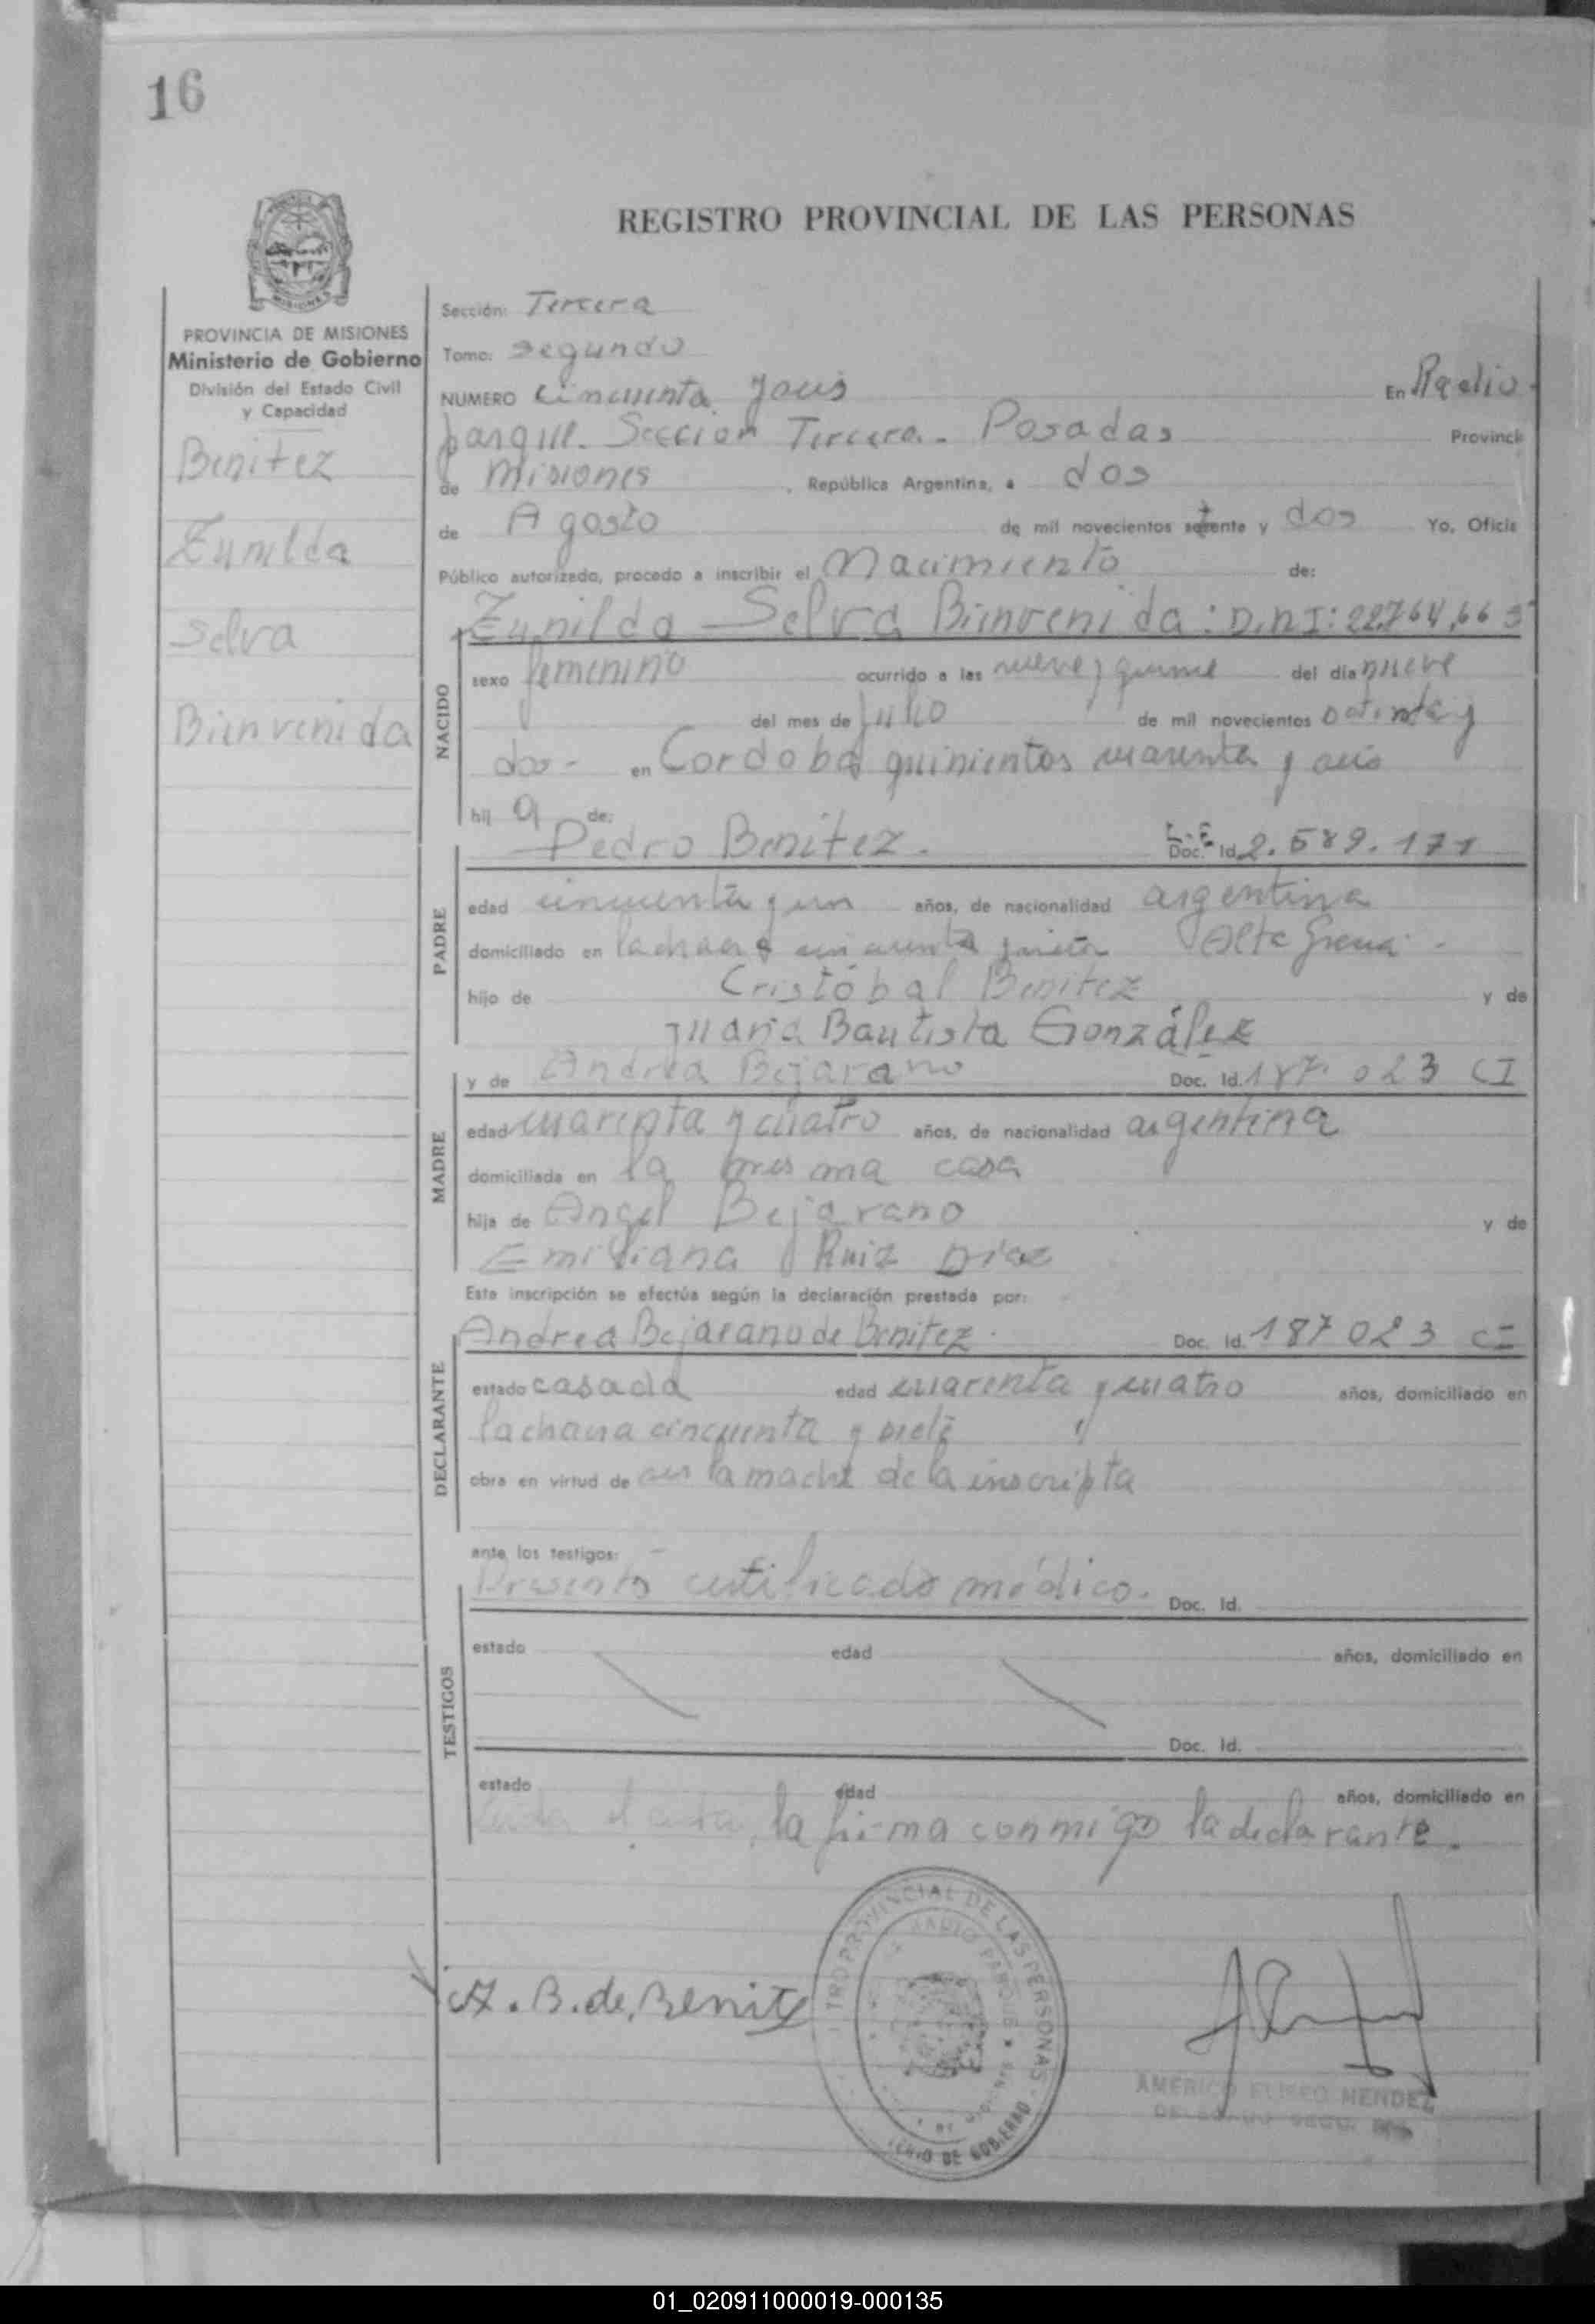 16
REGISTRO PROVINCIAL DE LAS PERSONAS
PROVINCIA DE MISIONES
Ministerio de Gobierno
División del Estado Civil
y Capacidad
Benitez
Zunilda
Selva
Bienvenida
Sección: Tercera
Tomo: Segundo
NUMERO Cincuenta y seis En Radio
parque. Sección Tercera. Posadas Provinci
de Misiones , República Argentina, a dos
de Agosto de mil novecientos setenta y dos Yo, Oficia
Público autorizado, procedo a inscribir el Nacimiento de:
Zunilda Selva Bienvenida: D.N.I: 22.764,663
NACIDO
sexo femenino ocurrido a las nueve y quince del día nueve
del mes de Julio de mil novecientos setenta y
dos- en Cordoba quinientos cuarenta y seis
hij a de:
Pedro Benitez. L.E Doc. Id 2.589.171
PADRE
edad cincuenta y un años, de nacionalidad argentina
domiciliado en la chacra cincuenta y siete
hijo de Cristóbal Benitez y de
Maria Bautista González
y de Andrea Bejarano Doc. Id. 187.023 CI
MADRE
edad cuarenta y cuatro años, de nacionalidad argentina
domiciliada en la misma casa
hija de Angel Bejarano y de
Emiliana Ruiz Diaz
Esta inscripción se efectúa según la declaración prestada por:
Andrea Bejarano de Benitez. Doc. Id. 187023 CI
DECLARANTE
estado casada edad cuarenta y cuatro años, domiciliado en
la chacra cincuenta y siete
obra en virtud de ser la madre de la inscripta
ante los testigos:
Presentó certificado médico. Doc. Id.
TESTIGOS
estado edad años, domiciliado en
Doc. Id.
estado edad años, domiciliado en
Leida el acta, la firma conmigo la declarante.
A. B. de Benitez
TRO PROVINCIAL DE LAS PERSONAS
RADIO PARQUE
TERIO DE GOBIERNO
AMERICO ELISEO MENDEZ
01_020911000019-000135